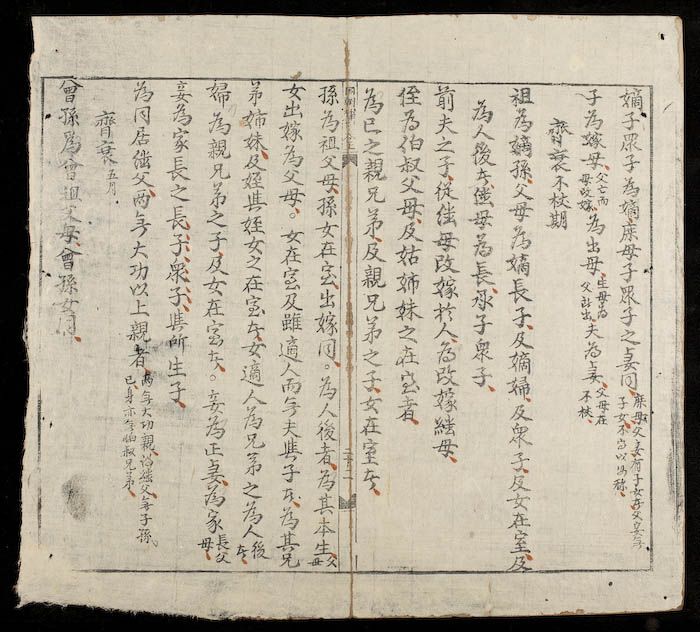 嫡子眾子為嫡庶母子眾子之妻同庶母父妾有子女者父妾無子女不得以母称
子為嫁母父亡而母改嫁為出母生母為父所出夫為妻父母在不杖
齊衰不杖期
祖為嫡孫父母為嫡長子及嫡婦及眾子及女在室及
為人後者継母為長子眾子
前夫之子從継母改嫁於人為改嫁継母
侄為伯叔父母及姑姊妹之在室者
為己之親兄弟及親兄弟之子女在室者
孫為祖父母孫女在室出嫁同。為人後者為其本生父母
女出嫁為父母。女在室及雖適人而無夫與子者為其兄
弟姊妹及姪與姪女之在室者女適人為兄弟之為人後者
婦為親兄弟之子及女在室者。妾為正妻為家長父母
妾為家長之長子眾子與所生子
為同居継父两無大功以上親者两無大功親謂継父無子孫己身亦無伯叔兄弟
齊衰五月
曾孫為曾祖父母曾孫女同